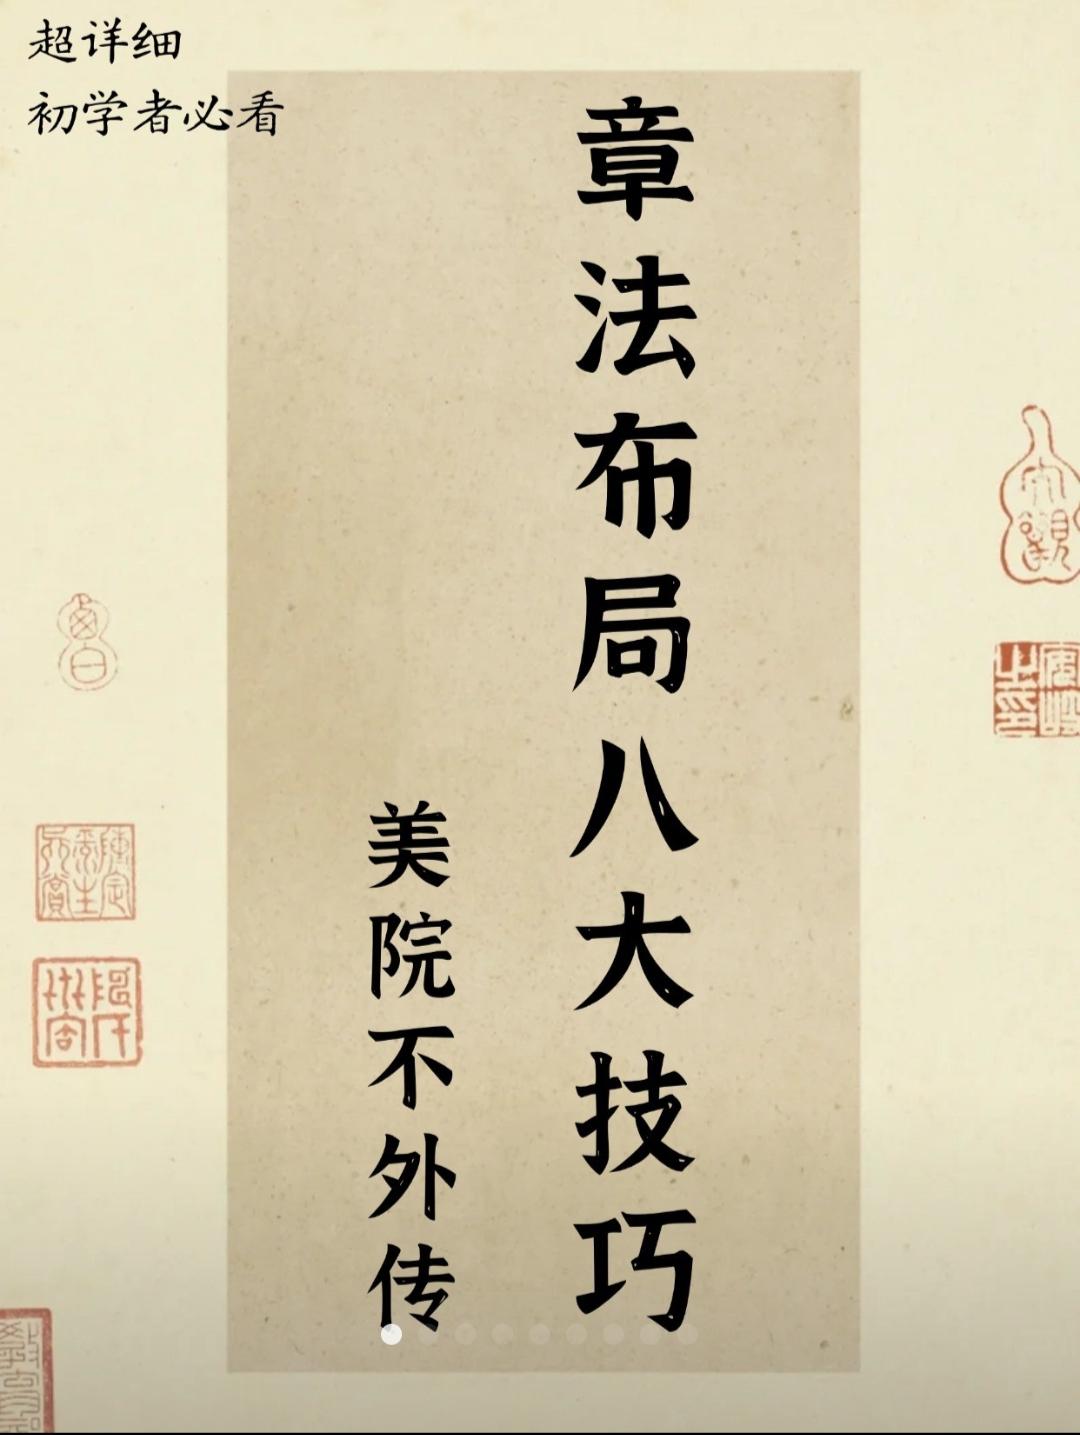 超详细
初学者必看
章法布局八大技巧
美院不外传